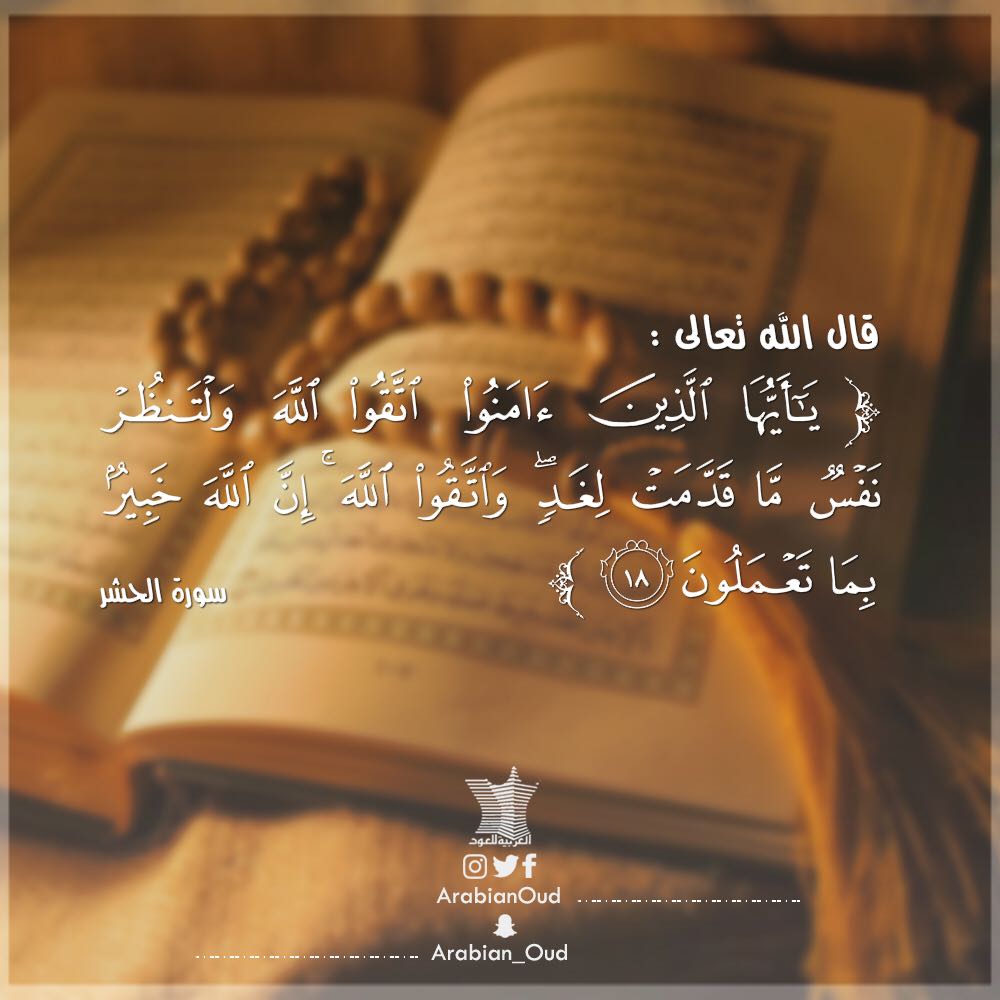 قال الله تعالى :
﴿ يَـٰٓأَيُّهَا ٱلَّذِينَ ءَامَنُوا۟ ٱتَّقُوا۟ ٱللَّهَ وَلْتَنظُرْ
نَفْسٌ مَّا قَدَّمَتْ لِغَدٍ ۖ وَٱتَّقُوا۟ ٱللَّهَ ۚ إِنَّ ٱللَّهَ خَبِيرٌۢ
بِمَا تَعْمَلُونَ ١٨ ﴾
سورة الحشر
العربية للعود
ArabianOud
Arabian_Oud